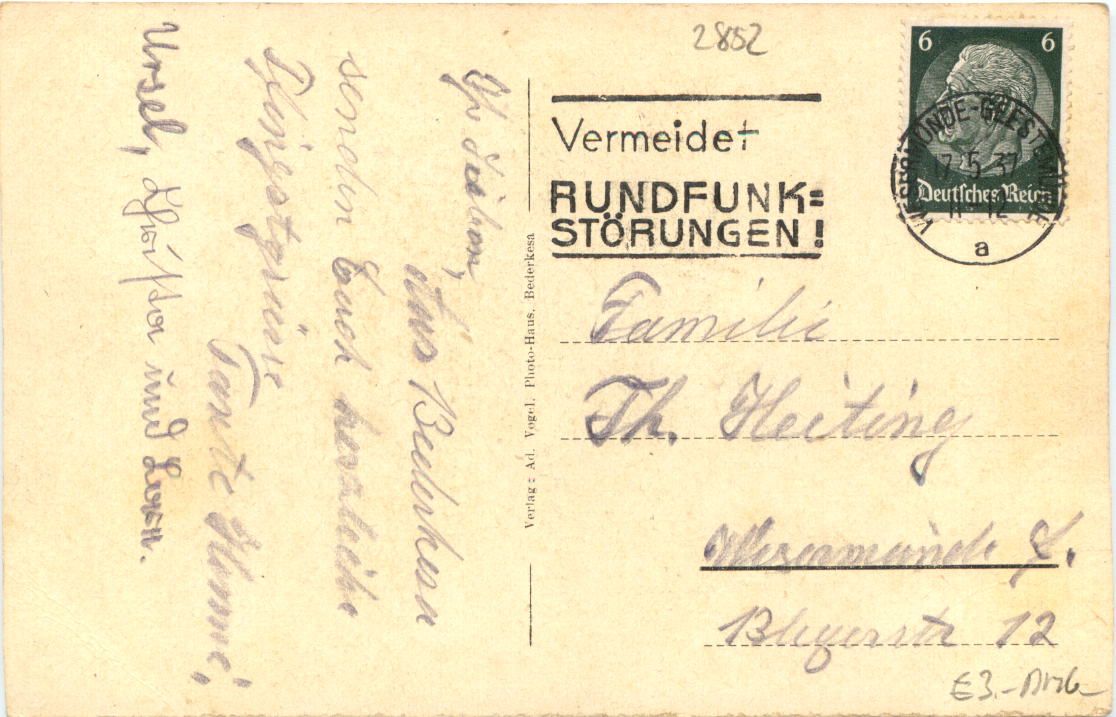 2852
6 6
Deutsches Reich
WESERMÜNDE-GEESTEMÜNDE
17.5.37
11-12
a
Vermeidet
RUNDFUNK=
STÖRUNGEN!
Ihr Lieben,
Aus Bederkesa
senden Euch herzliche
Pfingstgrüsse
Tante
Ursel, und
Verlag: Ad. Vogel, Photo-Haus, Bederkesa
Familie
Th. Heiting
Wesermünde
12